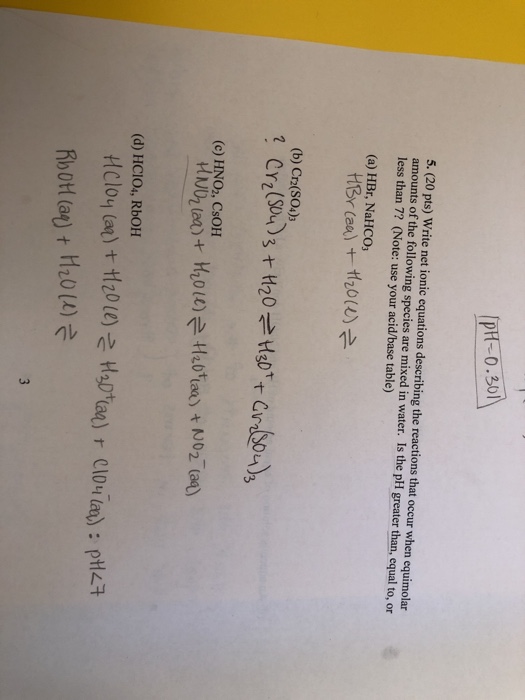 pH=0.301
5. (20 pts) Write net ionic equations describing the reactions that occur when equimolar
amounts of the following species are mixed in water. Is the pH greater than, equal to, or
less than 7? (Note: use your acid/base table)
(a) HBr, NaHCO₃
HBr(aq) + H₂O(l) ⇌
(b) Cr₂(SO₄)₃
? Cr₂(SO₄)₃ + H₂O ⇌ H₃O⁺ + Cr₂(SO₄)₃
(c) HNO₂, CsOH
HNO₂(aq) + H₂O(l) ⇌ H₃O⁺(aq) + NO₂⁻(aq)
(d) HClO₄, RbOH
HClO₄(aq) + H₂O(l) ⇌ H₃O⁺(aq) + ClO₄⁻(aq) : pH<7
RbOH(aq) + H₂O(l) ⇌
3